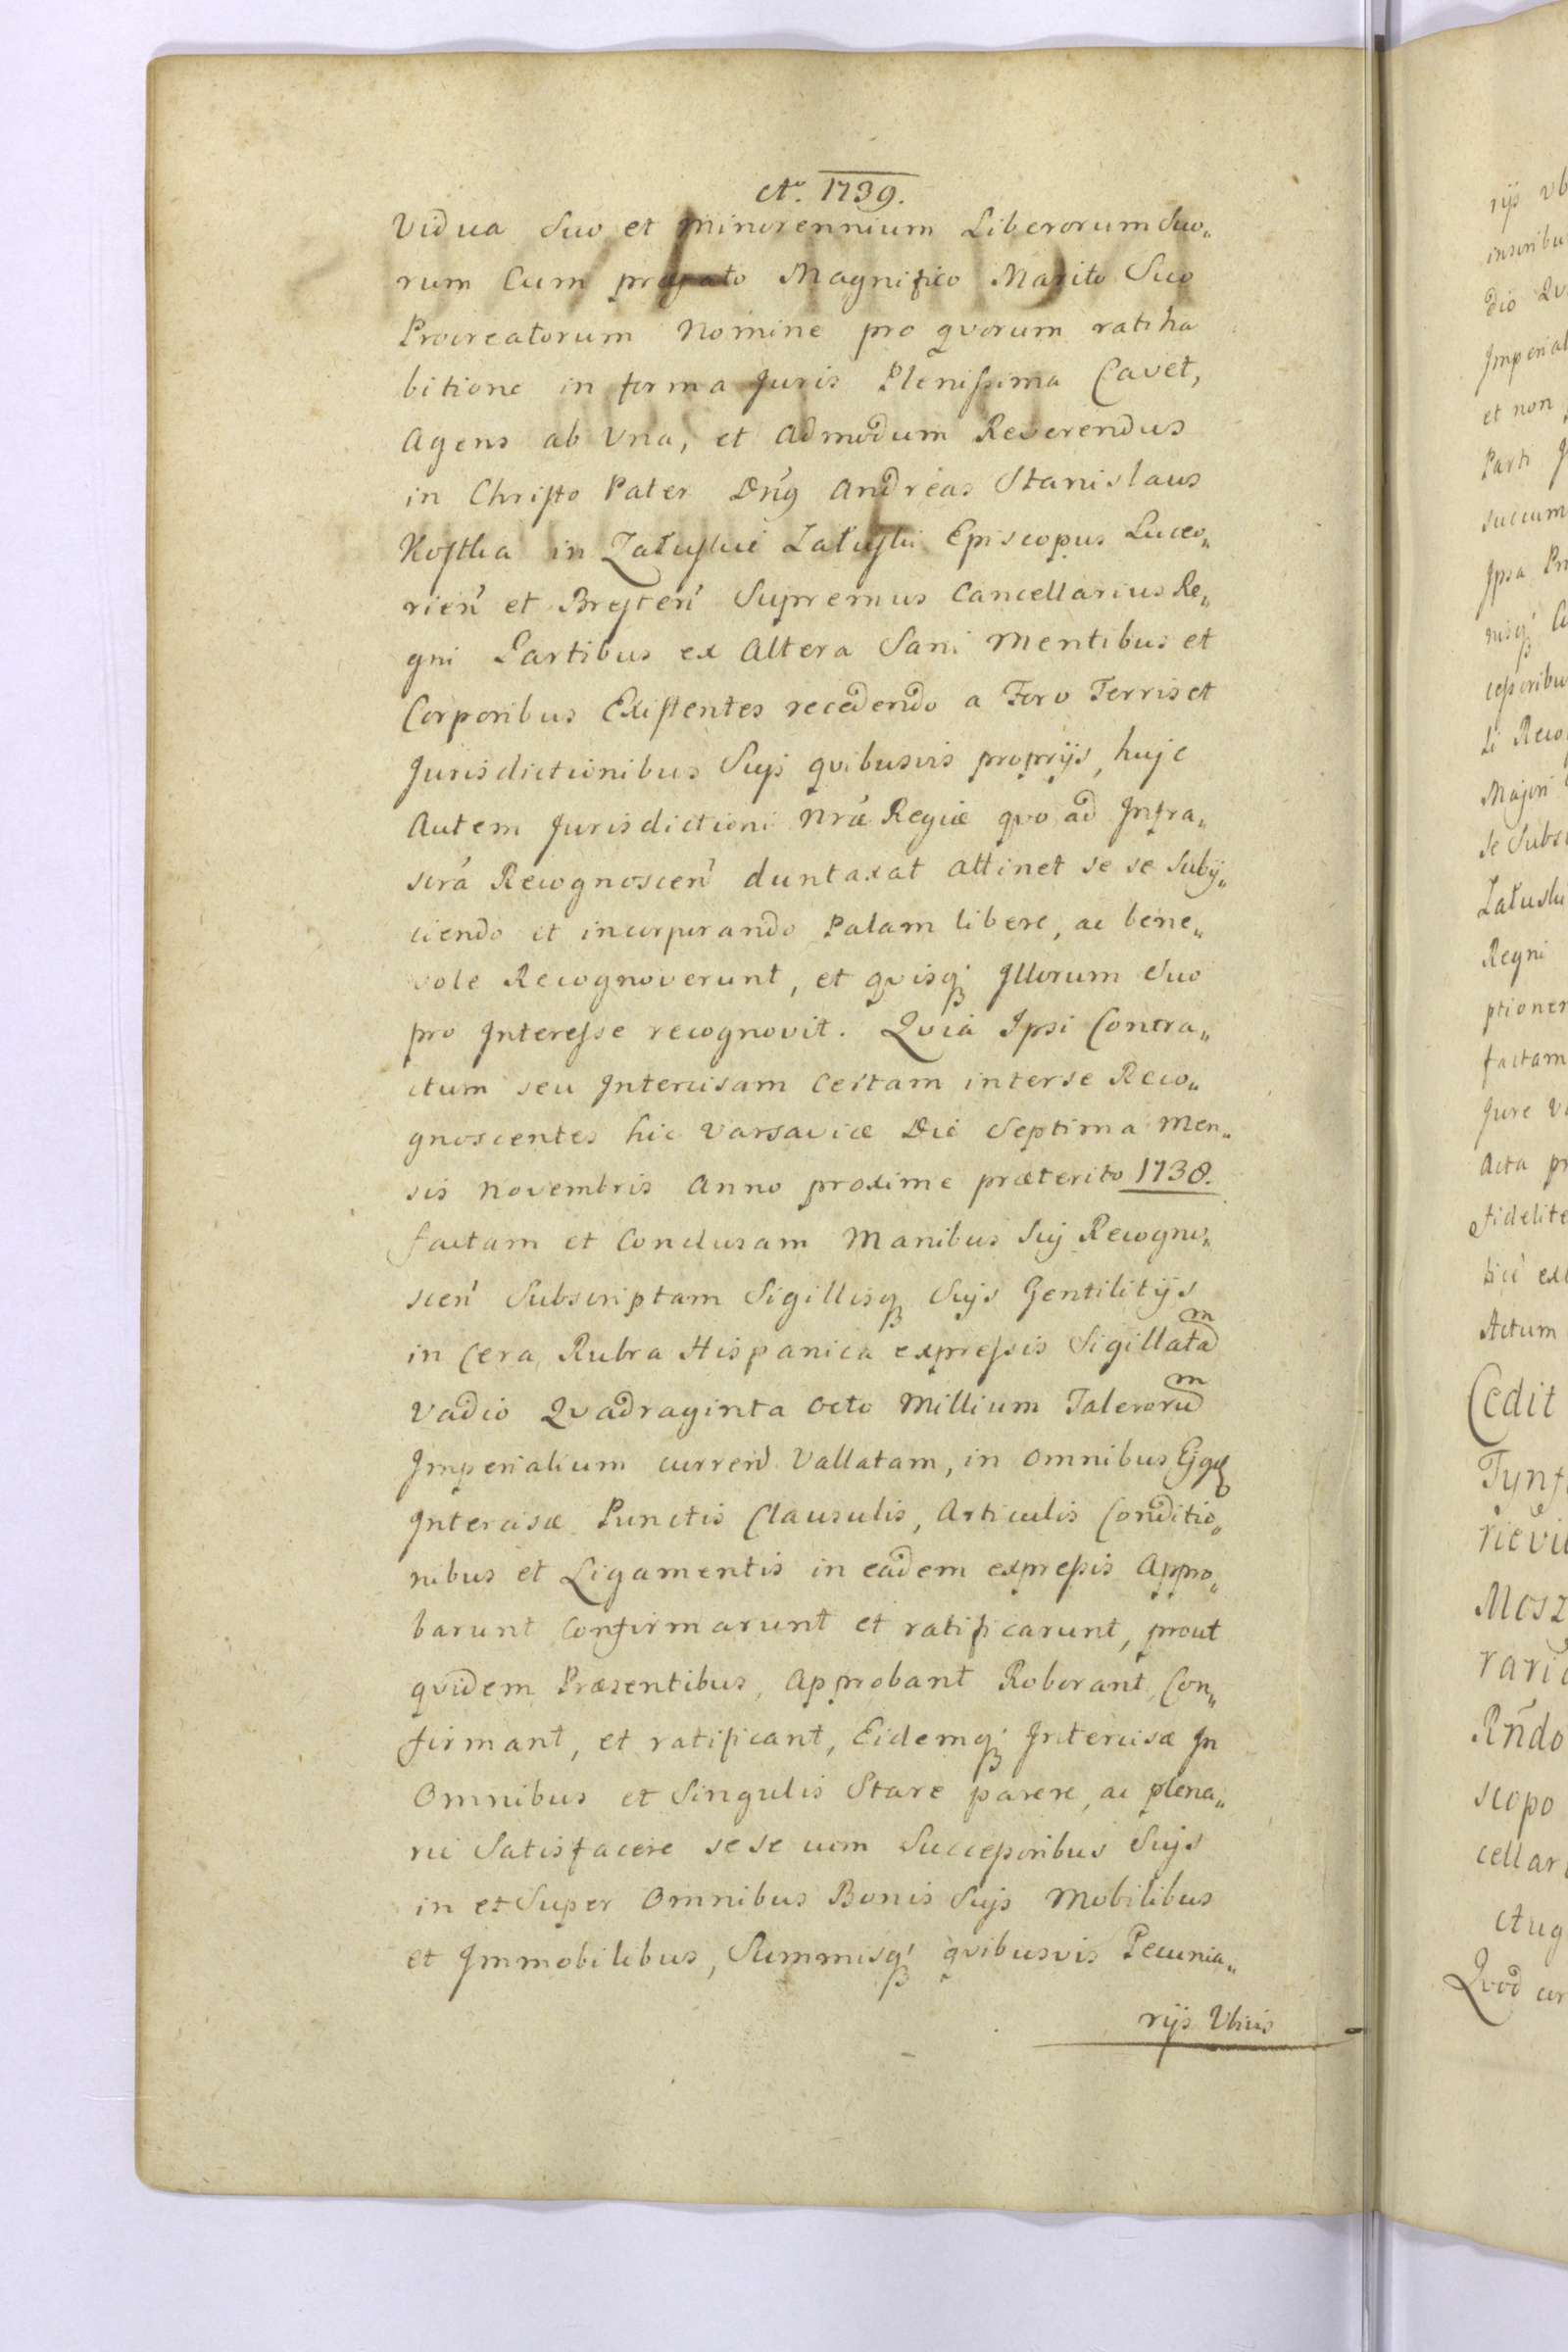 Ao. 1739.
Vidua Suo et minorennium Liberorum Suo„
rum Cum præfato Magnifico Marito Suo
Procreatorum Nomine pro qvorum ratiha
bitione in forma Juris Plenissima Cavet,
Agens ab Una, et Admodum Reverendus
in Christo Pater Dn̄g Andreas Stanislaus
Kostka in Załuskie Załuski Episcopus Luceo„
rien̄ et Bresten̄ Supremus Cancellarius Re„
gni Partibus ex Altera Sani Mentibus et
Corporibus Existentes recedendo a Foro Terris et
Jurisdictionibus Suys qvibusvis proprijs, hujc
Autem Jurisdictioni Nrǽ Regiæ qvo ad Infra„
scrá Recognoscen̄ duntaxat attinet se se Suby„
ciendo et incorporando Palam libere, ac bene„
vole Recognoverunt, et qvisq́ Illorum Suo
pro Interesse recognovit. Qvia Ipsi Contra„
ctum seu Intercisam Certam inter se Reco„
gnoscentes hic Varsaviæ Die Septima Men„
sis Novembris Anno proxime præterito 1738.
factam et Conclusam Manibus Suy Recogno„
scen̄ Subscriptam Sigillisq Suys Gentilitijs
in Cera Rubra Hispanica expressis Sigillatam
Vadio Qvadraginta Octo Millium Talerorum
Imperialium curren̄ Vallatam, in Omnibus Ejgd
Intercisæ Punctis Clausulis, Articulis Conditio„
nibus et Ligamentis in eadem expressis Appro„
barunt Confirmarunt et ratificarunt, prout
qvidem Præsentibus, Approbant Roborant, Con„
firmant, et ratificant, Eidemq́ Intercisæ In
Omnibus et Singulis Stare parere, ac plena„
rie Satisfacere se se cum Successoribus Suys
in et Super Omnibus Bonis Suys Mobilibus
et Immobilibus, Summisq́ qvibusvis Pecunia„
rijs Ubivis
rijs
dio
Imperial
et non
Parti
Ipsa
Li
Majori
Se Subsc
Załuski
Regni
ptionem
factam
Jure
Acta
fidelite
Actum
Cedit
Tynf
Mosz
Rn̄do
scopo
cellar
Aug
Qvod